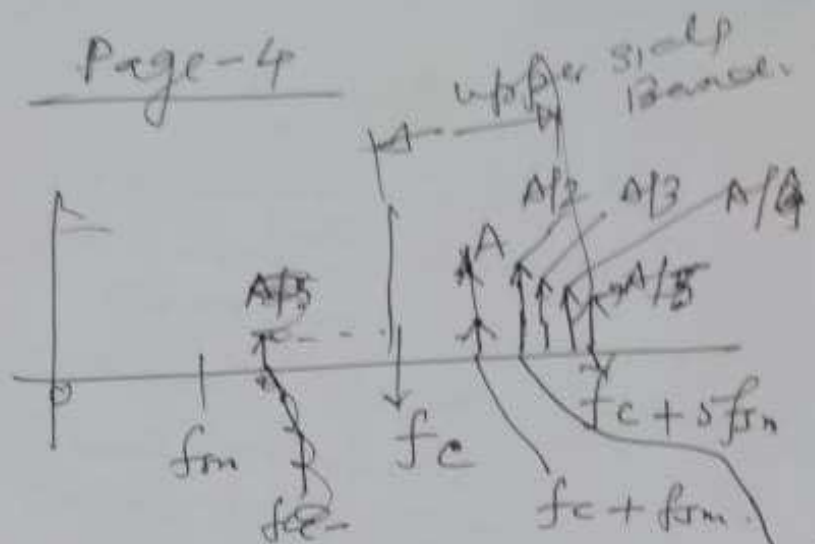 Page-4
upper side
Band.
A/2 A/3 A/4
A
A/5 A/5
0
fm fc fc + 5fm
fc-
fc + fm.